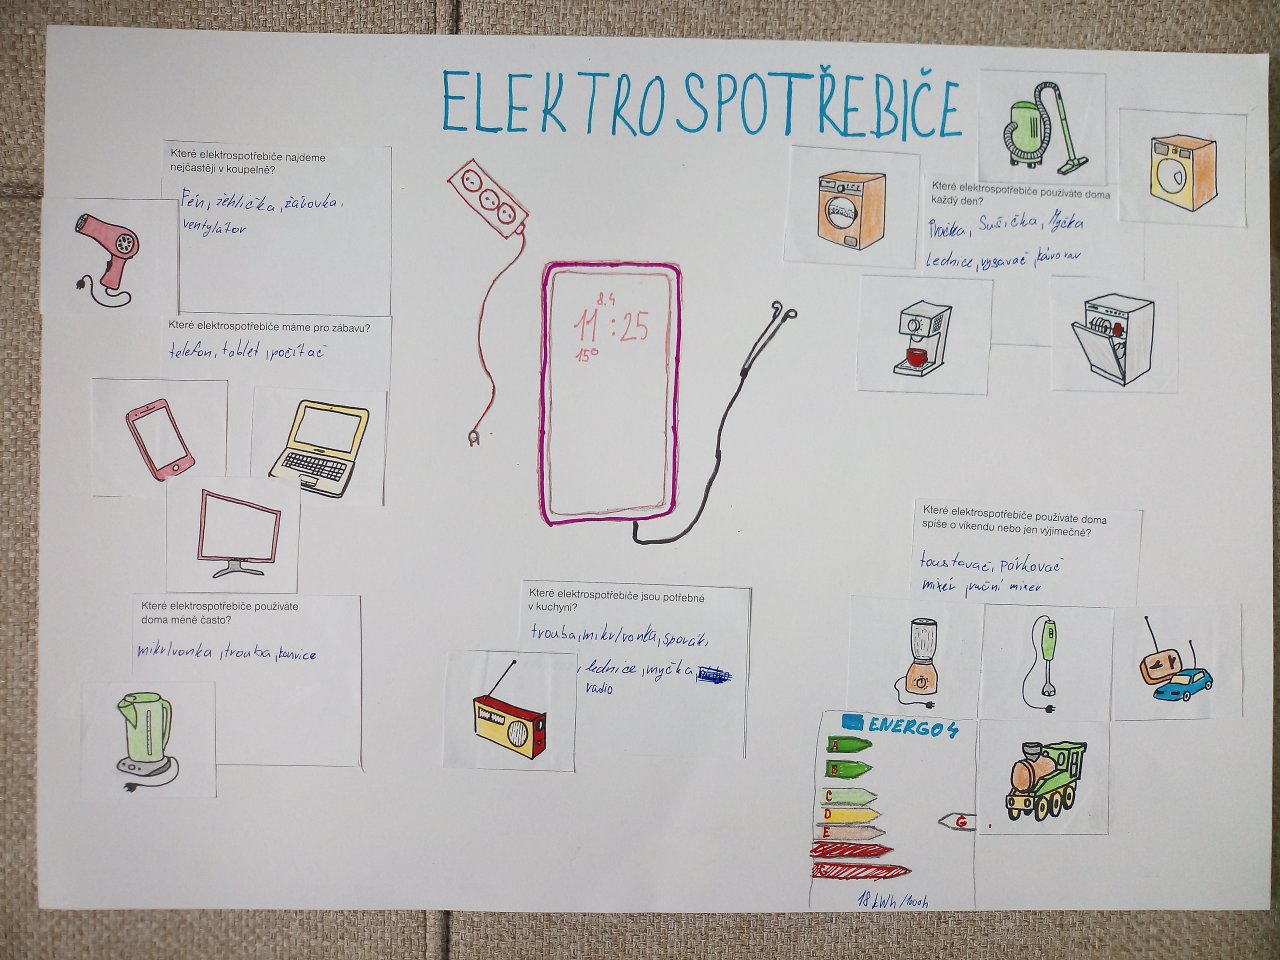 ELEKTROSPOTŘEBIČE
Které elektrospotřebiče najdeme
nejčastěji v koupelně?
Fén, žehlička, žárovka,
ventylátor
Které elektrospotřebiče máme pro zábavu?
telefon, tablet, počítač
Které elektrospotřebiče používáte
doma méně často?
mikrlvonka, trouba, konvice
8.4
11:25
15°
Které elektrospotřebiče jsou potřebné
v kuchyni?
trouba, mikrlvonka, sporák,
, lednice, myčka,
radio
Které elektrospotřebiče používáte doma
každý den?
Pračka, Sušička, Myčka
Lednice, vysavač, kávovar
Které elektrospotřebiče používáte doma
spíše o víkendu nebo jen výjimečně?
toustovač, párkovač
mixér, ruční mixer
ENERG
A
B
C
D
E
G
18 kWh/1000h